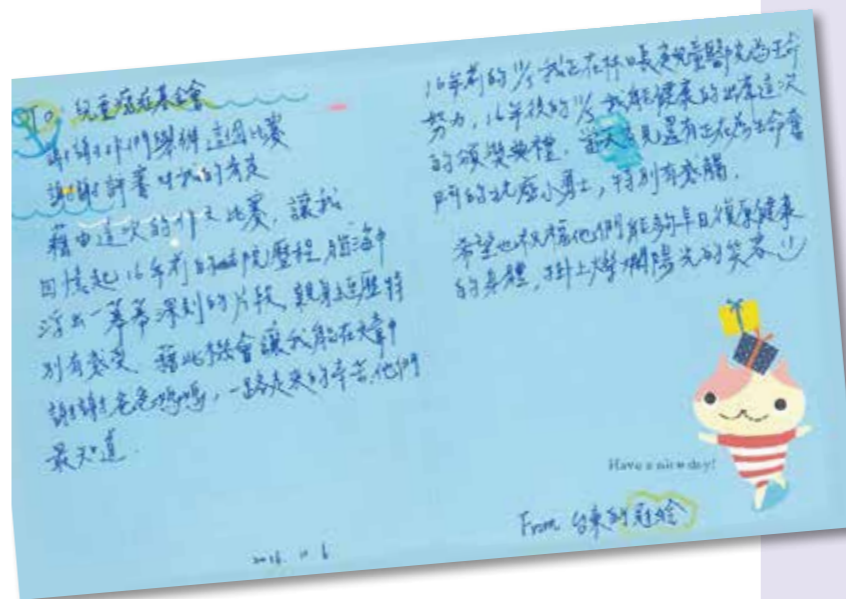 To. 兒童癌症基金會
謝謝你們舉辦這個比賽
謝謝評審對我的肯定
藉由這次的作文比賽，讓我
回憶起16年前的病院歷程，腦海中
浮出一幕幕深刻的片段，親身經歷特
別有感受。藉此機會讓我能在文章中
謝謝爸爸媽媽，一路走來的辛苦，他們
最知道.
2016. 11. 6
16年前的11/5我正在林口長庚兒童醫院為生命
努力，16年後的11/5我能健康的出席這次
的頒獎典禮。當天看見還有正在為生命奮
鬥的抗癌小勇士，特別有感觸.
希望也祝福他們能夠早日復原健康
的身體，掛上燦爛陽光的笑容
Have a nice day!
From 台東的冠